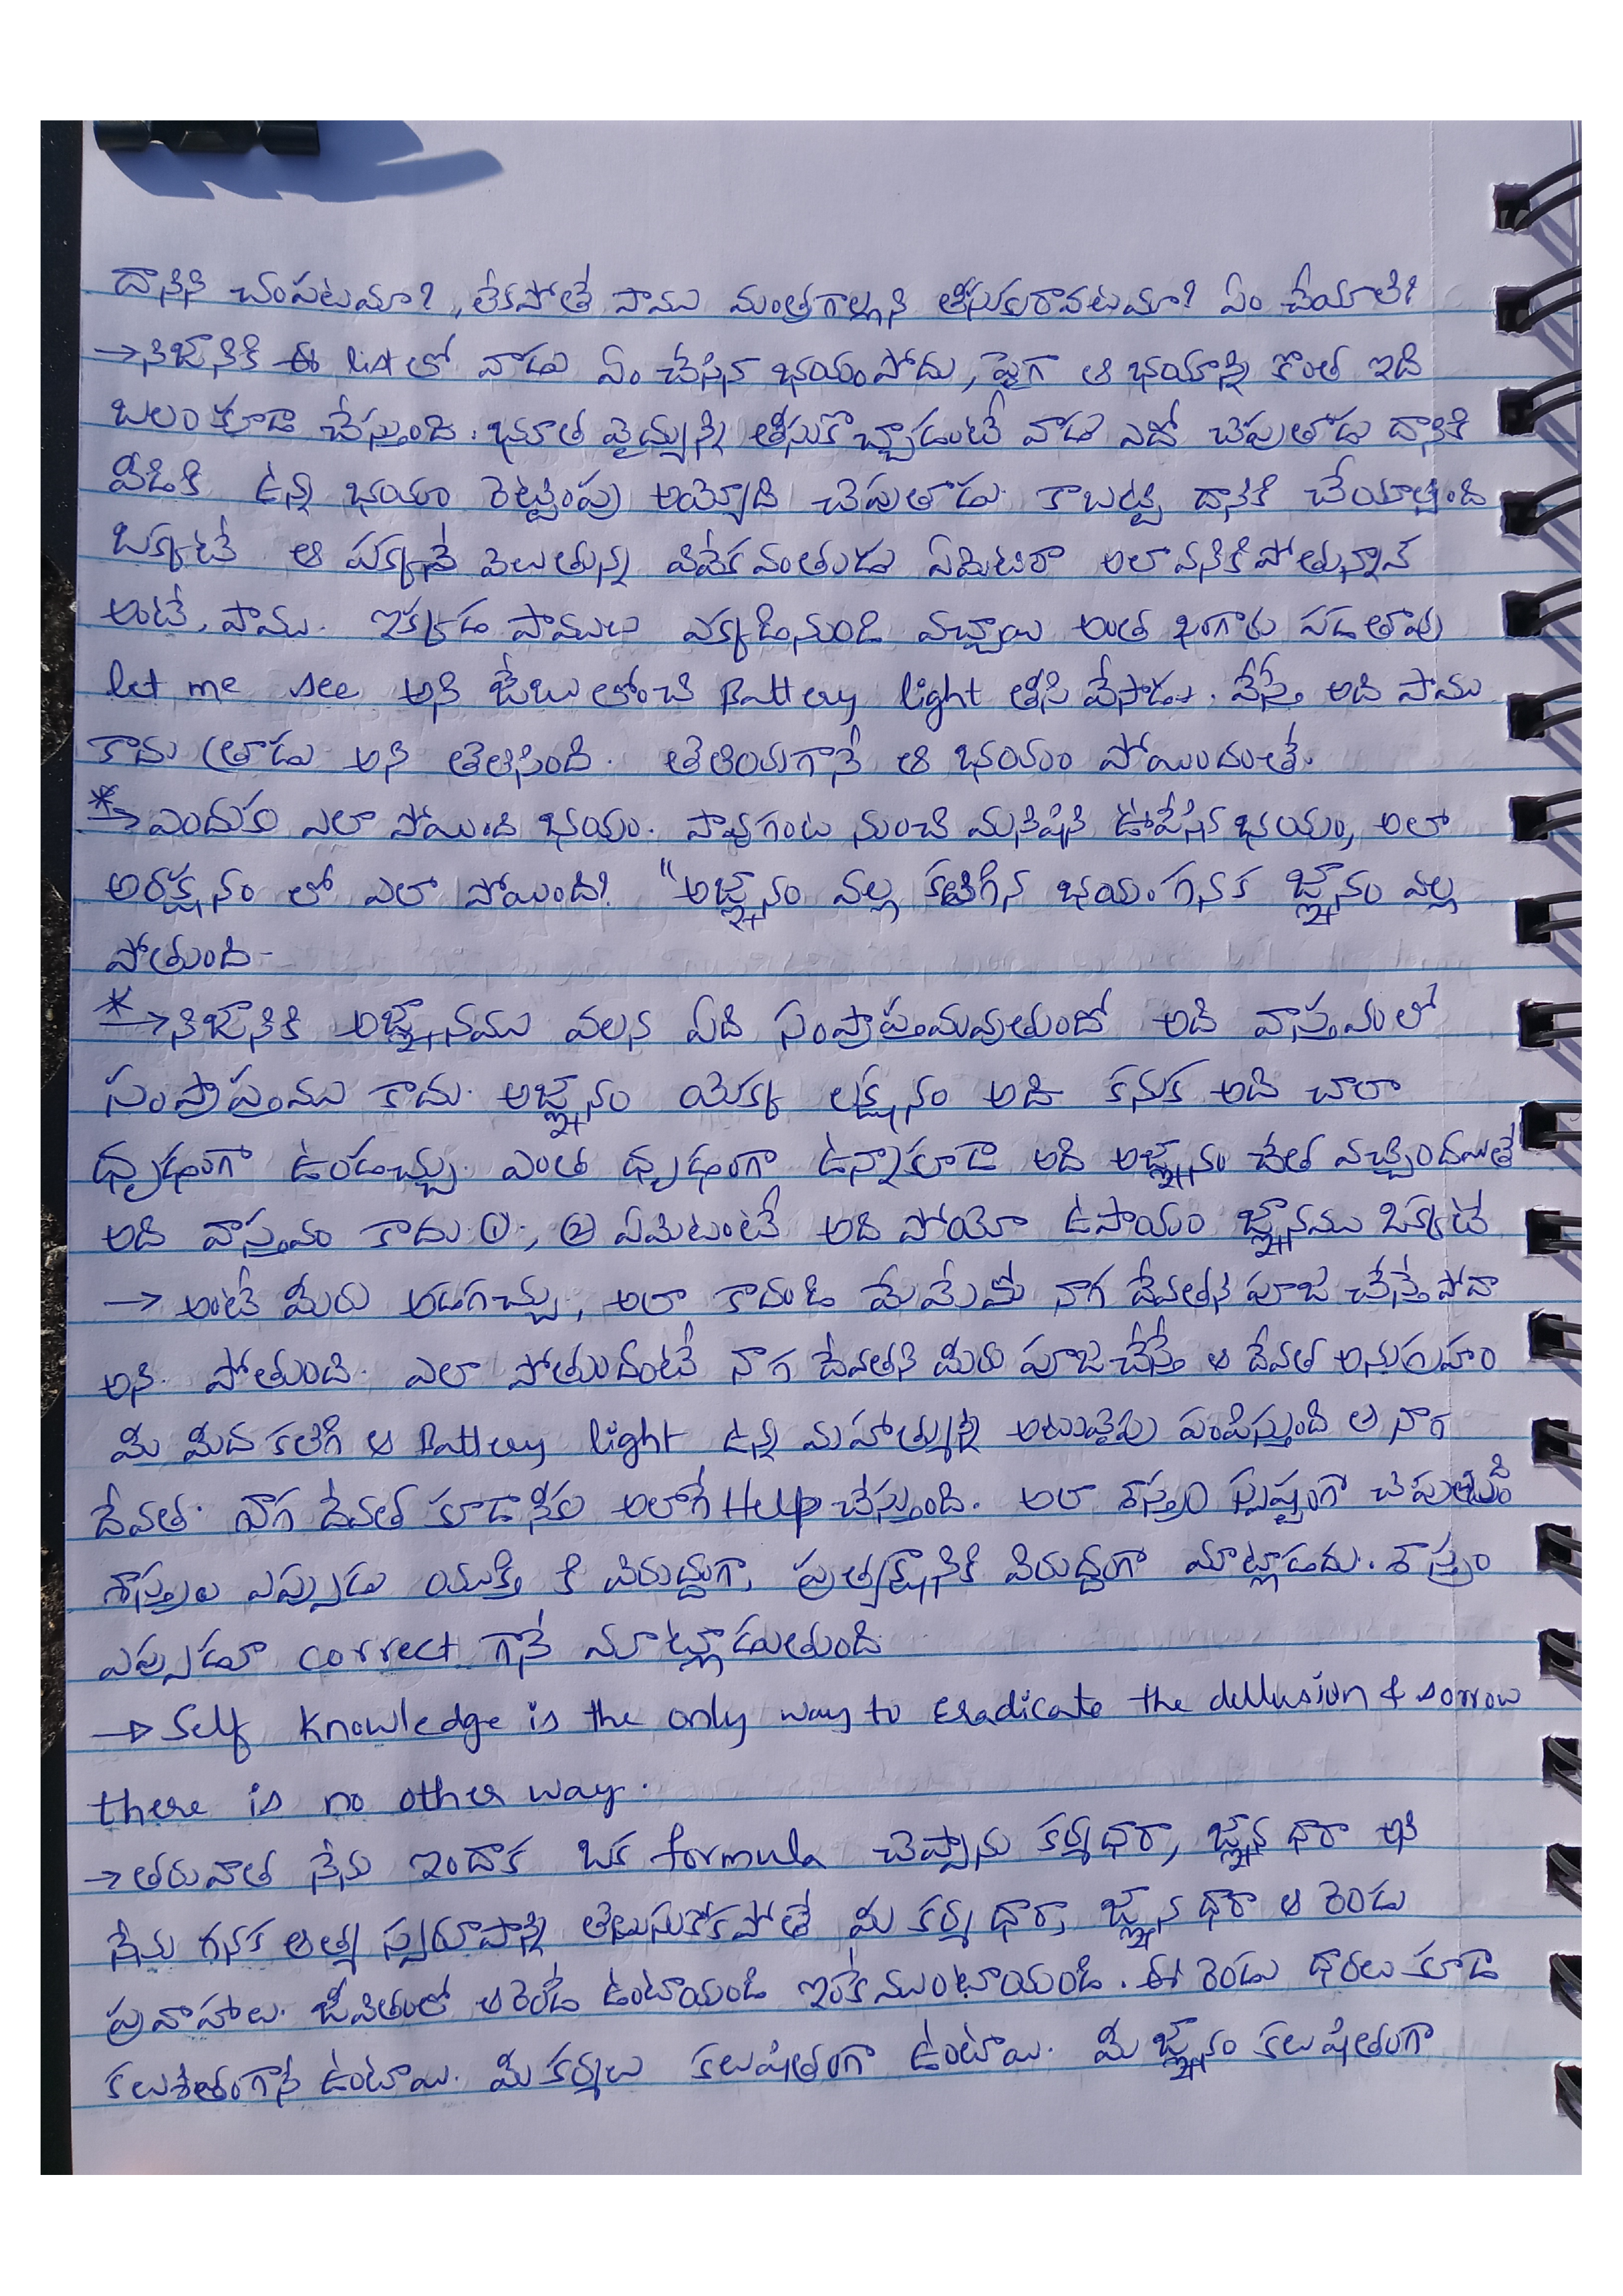 దానిని చంపటమా?, లేకపోతే పాము మంత్రగాళ్ళని తీసుకురావటమా? ఏం చేయాలి?
→నిజానికి ఈ list లో వాడు ఏం చేసిన భయం పోదు, పైగా ఆ భయాన్ని కొంత ఇది
బలం కూడా చేస్తుంది. భూత వైద్యున్ని తీసుకొచ్చాడంటే వాడు ఎదో చెపుతాడు దానికి
వీడికి ఉన్న భయం రెట్టింపు అయ్యేది చెపుతాడు. కాబట్టి దానికి చేయాల్సింది
ఒక్కటే ఆ పక్కనే వెలుతున్న వివేకవంతుడు ఏమిటిరా అలా వనికిపోతున్నావ్
అంటే, పాము. ఇక్కడ పాములు ఎక్కడినుండి వచ్చాయి అంత కంగారు పడతావు
let me see అని జేబులోంచి Battery light తీసి వేసాడు. వేస్తే అది పాము
కాదు త్రాడు అని తెలిసింది. తెలియగానే ఆ భయం పోయిందంతే.
*→ ఎందుకు ఎలా పోయింది భయం. పావుగంట నుంచి మనిషిని ఊపేసిన భయం, అలా
అరక్షనం లో ఎలా పోయింది? "అజ్ఞ్నానం వల్ల కలిగిన భయం గనక జ్ఞ్నానం వల్ల
పోతుంది-
*→నిజానికి అజ్ఞ్నానము వలన ఏది సంప్రాప్తమవుతుందో అది వాస్తవంలో
సంప్రాప్తంము కాదు. అజ్ఞ్నానం యొక్క లక్షనం అది కనుక అది చాలా
ధృఢంగా ఉండచ్చు. ఎంత ధృఢంగా ఉన్నాకూడా అది అజ్ఞ్నానం చేత వచ్చిందయితే
అది వాస్తవం కాదు ①., ② ఏమిటంటే అది పోయే ఉపాయం జ్ఞ్నానము ఒక్కటే
→ అంటే మీరు అడగచ్చు, అలా కాదండి మేమేమో నాగ దేవతని పూజ చేస్తే పోదా
అని. పోతుంది. ఎలా పోతుందంటే నాగ దేవతని మీరు పూజచేస్తే ఆ దేవత అనుగ్రహం
మీ మీద కలిగి ఆ Battery light ఉన్న మహాత్మున్ని అటువైపు పంపిస్తుంది ఆ నాగ
దేవత. నాగ దేవత కూడా నీకు అలాగే Help చేస్తుంది. అలా శాస్త్రం స్పష్టంగా చెపుతుంది
శాస్త్రాలు ఎప్పుడు యుక్తి కి విరుద్ధంగా, ప్రత్యక్షానికి విరుద్ధంగా మాట్లాడదు. శాస్త్రం
ఎప్పుడూ correct గానే మాట్లాడుతుంది
→ Self Knowledge is the only way to Eradicate the dellusion & sorrow
there is no other way.
→ తరువాత నేను ఇందాక ఒక formula చెప్పాను కర్మధారా, జ్ఞ్నాన ధారా అని
నేను గనక ఆత్మ స్వరూపాన్ని తెలుసుకోకపోతే మీ కర్మ ధారా, జ్ఞ్నాన ధారా ఆ రెండు
ప్రవాహాలు. జీవితంలో ఆ రెండే ఉంటాయండి ఇంకేముంటాయండి. ఈ రెండు ధారలు కూడా
కలుశితంగానే ఉంటాయి. మీ కర్మలు కలుషితంగా ఉంటాయి. మీ జ్ఞ్నానం కలుషితంగా